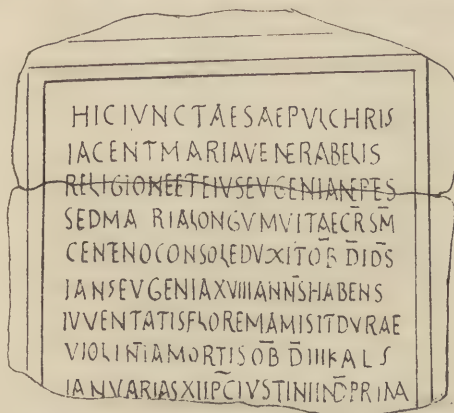 HIC IVNCTAE SAEPVLCHRIS
IACENT MARIA VENERABELIS
RELIGIONE ET EIVS EVGENIA NEPES
SED MARIA LONGVM VITAE CR̅S̅M̅
CENTENO CONSOLE DVXIT OB̅ D̅ ID̅S
IANS EVGENIA XVIII ANN̅S HABENS
IVVENTATIS FLOREM AMISIT DVRAE
VIOLINTIA MORTIS OB̅ D̅ III KALS
IANVARIAS XII P̅C̅ IVSTINI IND̅ PRIMA